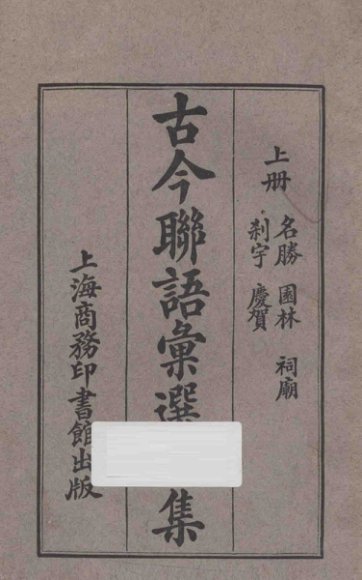 上册
名勝 園林 祠廟
刹宇 慶賀
古今聯語彙選 集
上海商務印書館出版